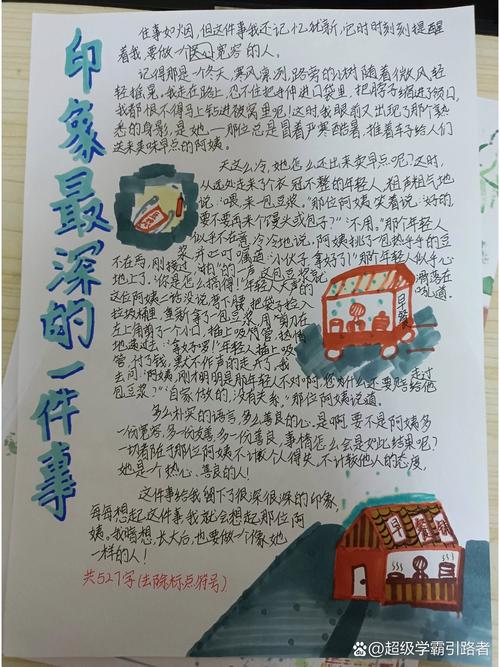 印象最深的一件事
往事如烟，但这件事我还记忆犹新，它时时刻刻提醒
着我，要做一个宽容的人。
记得那是一个冬天，寒风凛冽，路旁的小树随着微风轻
轻摇晃。我走在路上，也不住把手伸进口袋里，把脖子缩进了领口，
我都恨不得马上钻进被窝里呢！这时，我眼前又出现了那个熟
悉的身影，是她，一那位总是冒着严寒酷暑，推着车子给人们
送来美味早点的阿姨。
天这么冷，她怎么还出来卖早点呢？这时，
从远处走来了个衣冠不整的年轻人，粗声粗气地
说：“喂，来一包豆浆。”那位阿姨笑着说：“好的
要不要再来个馒头或包子？”“不用。”那个年轻人
似乎不在意，冷冷地说。阿姨挑了包热乎乎的豆
浆，并叮嘱道：“小伙子，拿好了！”那个年轻人似乎心
不在焉，刚接过，“啪”的一声，这包豆浆就洒落在
地上了。“你是怎么搞得！”年轻人大声的吼道。
这位阿姨二话没说，弯下腰，把袋子捡入
垃圾桶里，重新拿了一包豆浆，用剪刀在
左上角剪了一个小口，插上吸管，热情
地递过去：“拿好了啰！”年轻人插上吸
管，付了钱，默不作声的走开了。我走过
去问：“阿姨，刚才明明是那年轻人不对啊，您为什么还要赔给他
包豆浆？”“自家做的，没有关系。”那位阿姨说道。
多么朴实的语言，多么善良的心。是啊，要不是阿姨多
一份宽容，多一份友善，多一份善良，事情怎么会是如此结果呢？
一切都在于那位阿姨不计较个人得失，不计较他人的态度，
她是个热心、善良的人！
这件事给我留下了很深很深的印象，
每每想起这件事，我就会想起那位阿
姨。我暗想，长大后，也要做个像她
一样的人！
共527字（去除标点符号）
早餐
早餐铺
@超级学霸引路者